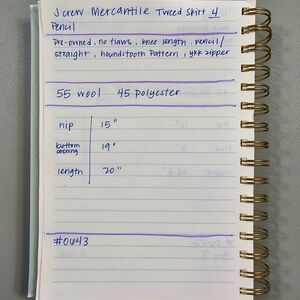 J Crew Mercantile Tweed Skirt 4
Pencil
Pre-owned, no flaws, knee length, pencil/
straight, houndstooth pattern, ykk zipper
55 wool 45 polyester
hip 15"
bottom opening 19"
length 20"
#0643